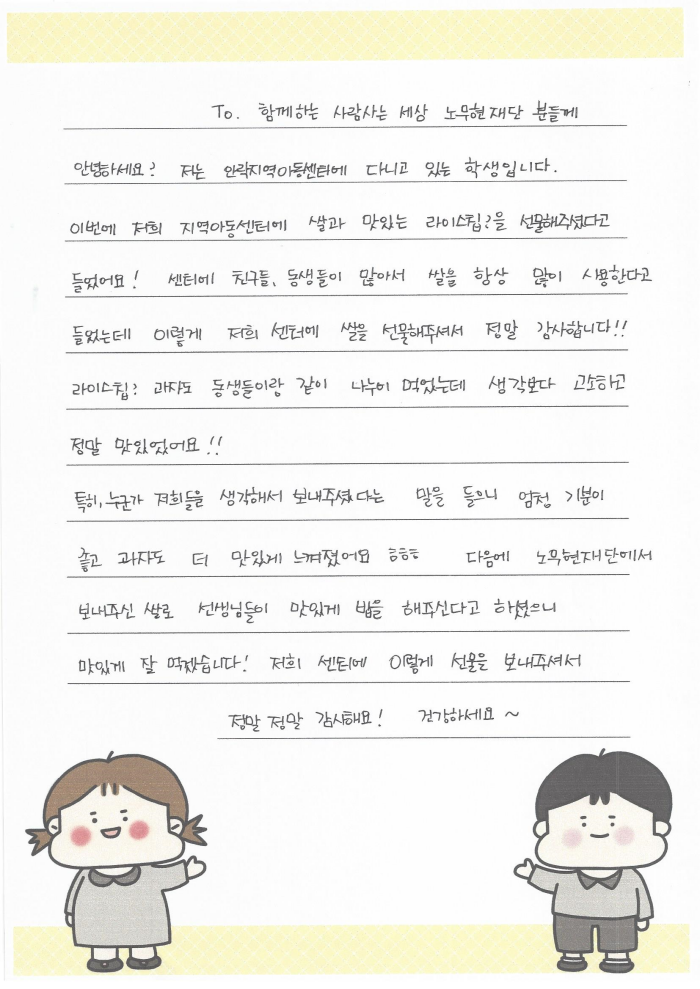 To. 함께하는 사람사는 세상 노무현재단 분들께
안녕하세요? 저는 안락지역아동센터에 다니고 있는 학생입니다.
이번에 저희 지역아동센터에 쌀과 맛있는 라이스칩?을 선물해주셨다고
들었어요! 센터에 친구들, 동생들이 많아서 쌀을 항상 많이 사용한다고
들었는데 이렇게 저희 센터에 쌀을 선물해주셔서 정말 감사합니다!!
라이스칩? 과자도 동생들이랑 같이 나누어 먹었는데 생각보다 고소하고
정말 맛있었어요!!
특히, 누군가 저희들을 생각해서 보내주셨다는 말을 들으니 엄청 기분이
좋고 과자도 더 맛있게 느껴졌어요 ㅎㅎㅎ 다음에 노무현재단에서
보내주신 쌀로 선생님들이 맛있게 밥을 해주신다고 하셨으니
맛있게 잘 먹겠습니다! 저희 센터에 이렇게 선물을 보내주셔서
정말 정말 감사해요! 건강하세요~